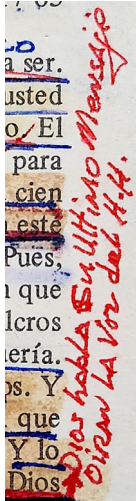 a ser.
usted
o. El
para
cien
esté
Pues,
n que
lcros
ería.
os. Y
que
Y lo
Dios
Dios habla Su Ultimo Mensaje
Oiran La Voz del H.H.